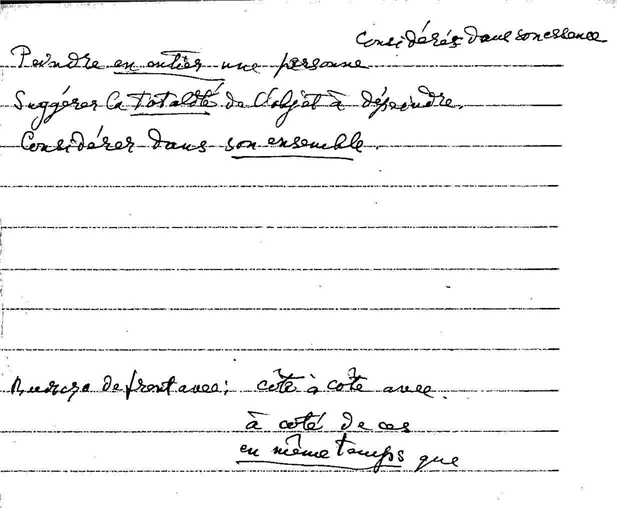 Considérés dans son essence
Peindre en entier une personne
Suggérer la totalité de l'objet à dépeindre.
Considérer dans son ensemble.
de front avec: côté à côté avec.
à coté de ces
en même temps que